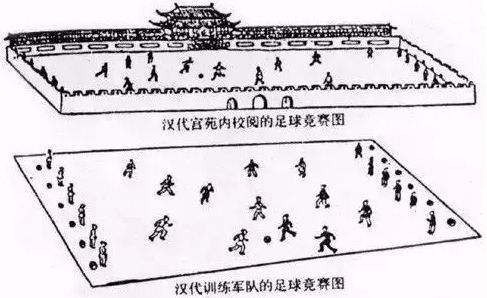 汉代宫苑内校阅的足球竞赛图
汉代训练军队的足球竞赛图